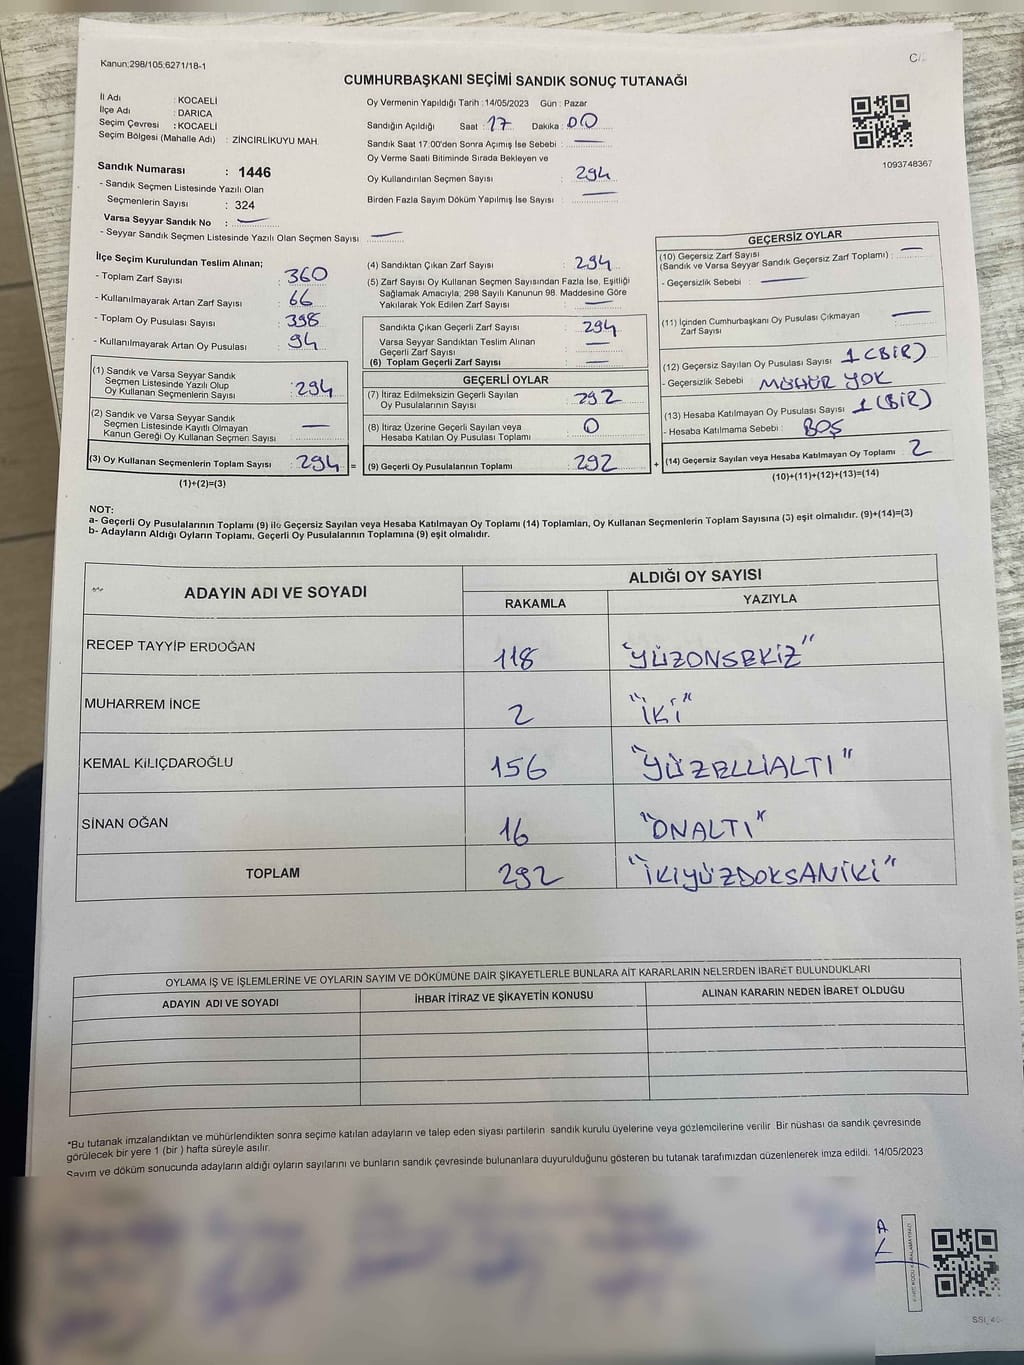 Kanun:298/105;6271/18-1
CUMHURBAŞKANI SEÇİMİ SANDIK SONUÇ TUTANAĞI
İl Adı : KOCAELİ
İlçe Adı : DARICA
Seçim Çevresi : KOCAELİ
Seçim Bölgesi (Mahalle Adı) : ZİNCİRLİKUYU MAH.
Sandık Numarası : 1446
- Sandık Seçmen Listesinde Yazılı Olan
Seçmenlerin Sayısı : 324
Varsa Seyyar Sandık No : —
- Seyyar Sandık Seçmen Listesinde Yazılı Olan Seçmen Sayısı : —
Oy Vermenin Yapıldığı Tarih :14/05/2023 Gün : Pazar
Sandığın Açıldığı Saat : 17 Dakika : 00
Sandık Saat 17:00'den Sonra Açımış İse Sebebi : —
Oy Verme Saati Bitiminde Sırada Bekleyen ve
Oy Kullandırılan Seçmen Sayısı : 294
Birden Fazla Sayım Döküm Yapılmış İse Sayısı : —
1093748367
İlçe Seçim Kurulundan Teslim Alınan;
- Toplam Zarf Sayısı : 360
- Kullanılmayarak Artan Zarf Sayısı : 66
- Toplam Oy Pusulası Sayısı : 398
- Kullanılmayarak Artan Oy Pusulası : 94
(1) Sandık ve Varsa Seyyar Sandık
Seçmen Listesinde Yazılı Olup
Oy Kullanan Seçmenlerin Sayısı : 294
(2) Sandık ve Varsa Seyyar Sandık
Seçmen Listesinde Kayıtlı Olmayan
Kanun Gereği Oy Kullanan Seçmen Sayısı : —
(3) Oy Kullanan Seçmenlerin Toplam Sayısı : 294 =
(1)+(2)=(3)
(4) Sandıktan Çıkan Zarf Sayısı : 294
(5) Zarf Sayısı Oy Kullanan Seçmen Sayısından Fazla İse, Eşitliği
Sağlamak Amacıyla; 298 Sayılı Kanunun 98. Maddesine Göre
Yakılarak Yok Edilen Zarf Sayısı : —
Sandıkta Çıkan Geçerli Zarf Sayısı : 294
Varsa Seyyar Sandıktan Teslim Alınan
Geçerli Zarf Sayısı : —
(6) Toplam Geçerli Zarf Sayısı : —
GEÇERLİ OYLAR
(7) İtiraz Edilmeksizin Geçerli Sayılan
Oy Pusulalarının Sayısı : 292
(8) İtiraz Üzerine Geçerli Sayılan veya
Hesaba Katılan Oy Pusulası Toplamı : 0
(9) Geçerli Oy Pusulalarının Toplamı : 292 +
GEÇERSİZ OYLAR
(10) Geçersiz Zarf Sayısı : —
(Sandık ve Varsa Seyyar Sandık Geçersiz Zarf Toplamı) :
- Geçersizlik Sebebi : —
(11) İçinden Cumhurbaşkanı Oy Pusulası Çıkmayan : —
Zarf Sayısı
(12) Geçersiz Sayılan Oy Pusulası Sayısı : 1 (BİR)
- Geçersizlik Sebebi : MÜHÜR YOK
(13) Hesaba Katılmayan Oy Pusulası Sayısı : 1 (BİR)
- Hesaba Katılmama Sebebi : BOŞ
(14) Geçersiz Sayılan veya Hesaba Katılmayan Oy Toplamı : 2
(10)+(11)+(12)+(13)=(14)
NOT:
a- Geçerli Oy Pusulalarının Toplamı (9) ile Geçersiz Sayılan veya Hesaba Katılmayan Oy Toplamı (14) Toplamları, Oy Kullanan Seçmenlerin Toplam Sayısına (3) eşit olmalıdır. (9)+(14)=(3)
b- Adayların Aldığı Oyların Toplamı, Geçerli Oy Pusulalarının Toplamına (9) eşit olmalıdır.
ADAYIN ADI VE SOYADI
ALDIĞI OY SAYISI
RAKAMLA YAZIYLA
RECEP TAYYİP ERDOĞAN 118 "YÜZONSEKİZ"
MUHARREM İNCE 2 "İKİ"
KEMAL KILIÇDAROĞLU 156 "YÜZELLİALTI"
SİNAN OĞAN 16 "ONALTI"
TOPLAM 292 "İKİYÜZDOKSANİKİ"
OYLAMA İŞ VE İŞLEMLERİNE VE OYLARIN SAYIM VE DÖKÜMÜNE DAİR ŞİKAYETLERLE BUNLARA AİT KARARLARIN NELERDEN İBARET BULUNDUKLARI
ADAYIN ADI VE SOYADI İHBAR İTİRAZ VE ŞİKAYETİN KONUSU ALINAN KARARIN NEDEN İBARET OLDUĞU
*Bu tutanak imzalandıktan ve mühürlendikten sonra seçime katılan adayların ve talep eden siyasi partilerin sandık kurulu üyelerine veya gözlemcilerine verilir. Bir nüshası da sandık çevresinde
görülecek bir yere 1 (bir ) hafta süreyle asılır.
Sayım ve döküm sonucunda adayların aldığı oyların sayılarını ve bunların sandık çevresinde bulunanlara duyurulduğunu gösteren bu tutanak tarafımızdan düzenlenerek imza edildi. 14/05/2023